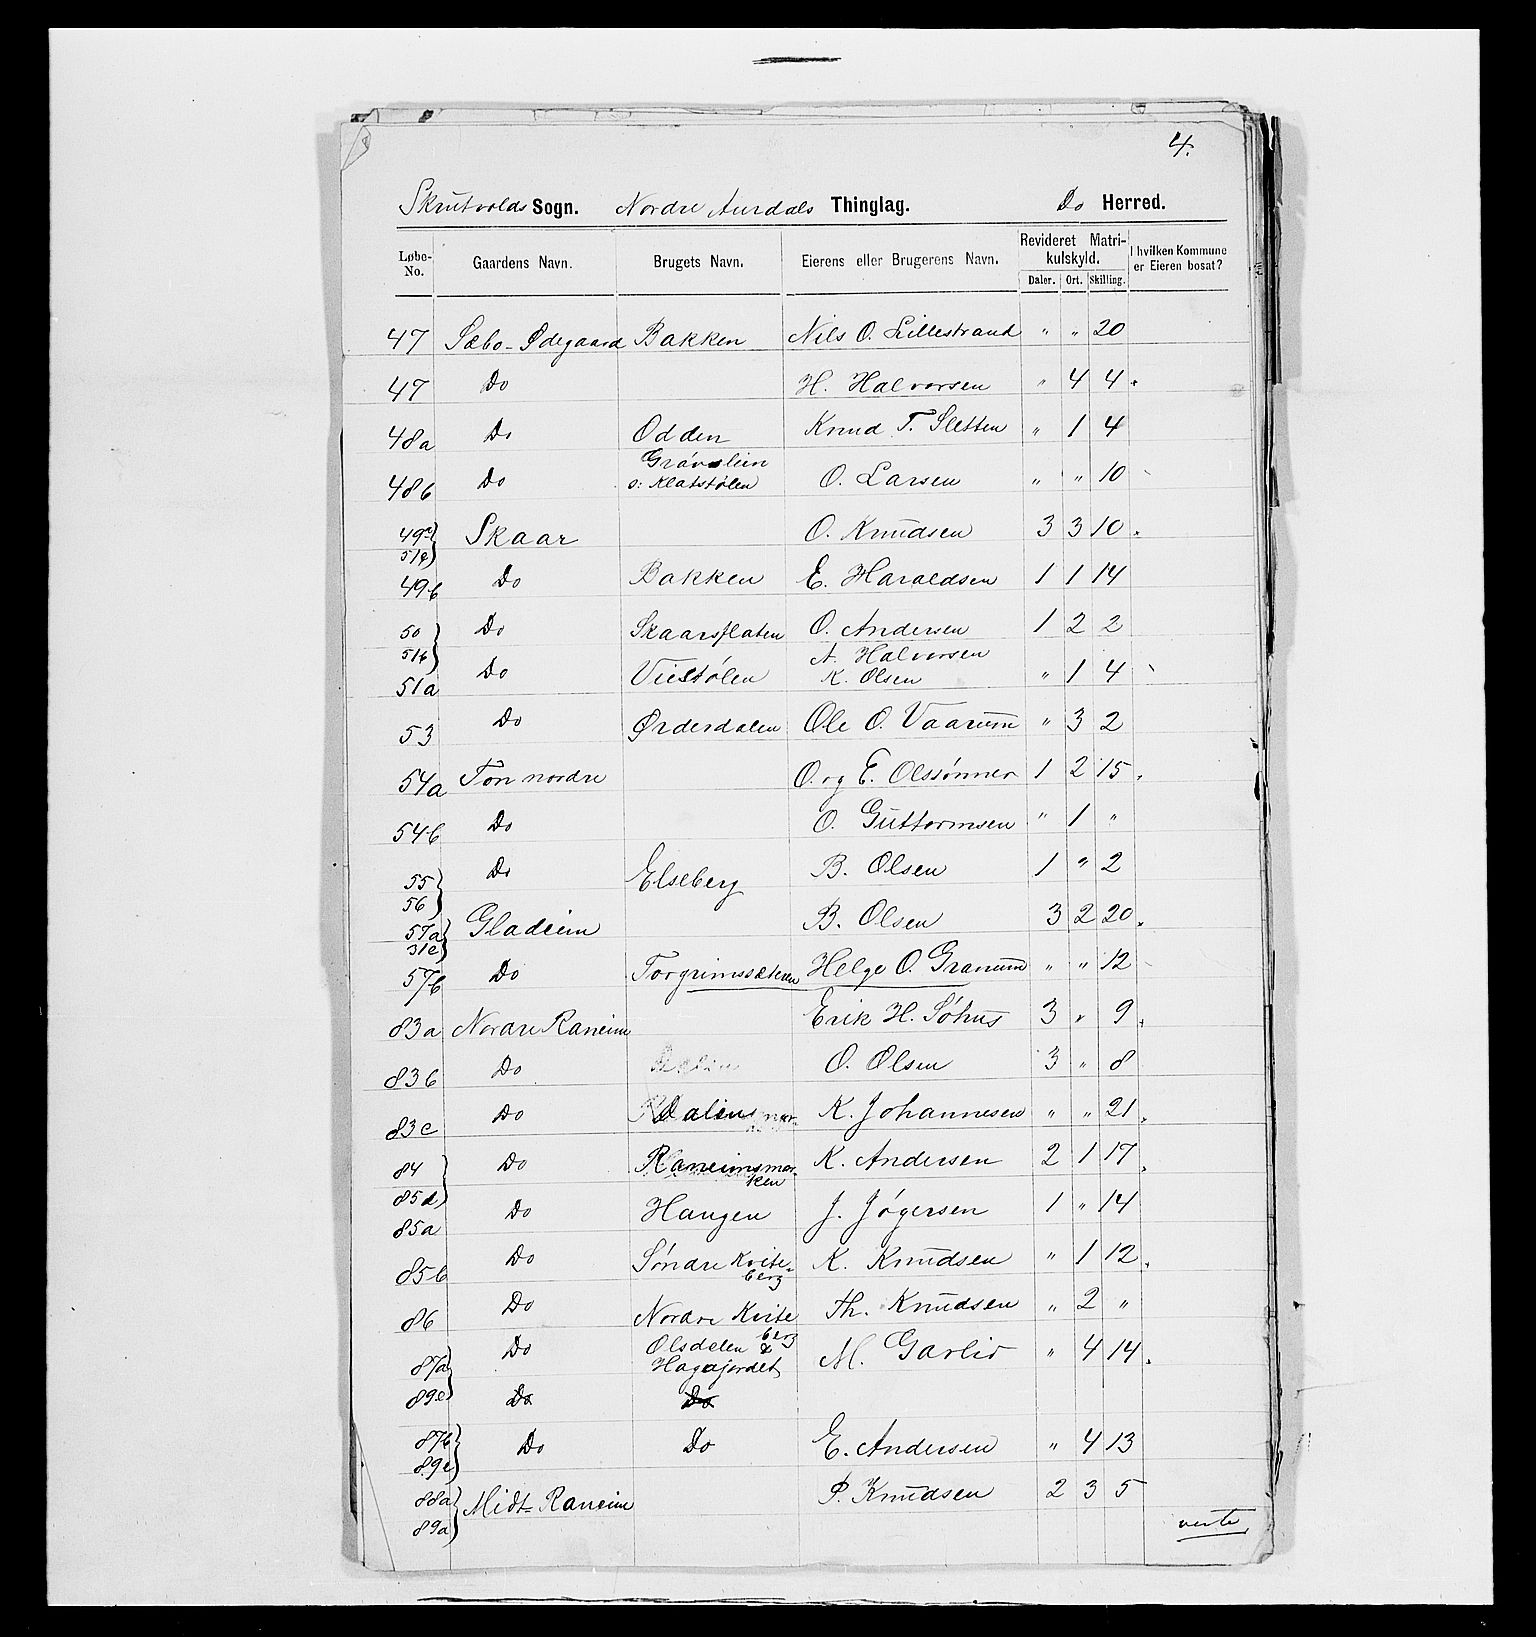 4.
Skrutvolds Sogn. Nordre Aurdals Thinglag. Do Herred.
Løbe-No. Gaardens Navn. Brugets Navn. Eierens eller Brugerens Navn. Revideret Matrikulskyld. Daler. Ort. Skilling. I hvilken Kommune er Eieren bosat?
47 Sæbo-Ødegaard Bakken Nils O. Lillestrand " " 20
47 Do H. Halvorsen " 4 4
48a Do Odden Knud T. Sletten " 1 4
48b Do Grøvslien o: Klatstølen O. Larsen " " 10
49a 51e Skaar O. Knudsen 3 3 10
49b Do Bakken E. Haraldsen 1 1 14
50 51b Do Skaarsflaten O. Andersen 1 2 2
51a Do Viestølen A. Halvorsen K. Olsen " 1 4
53 Do Ørderdalen Ole O. Vaarum " 3 2
54a Ton nordre O. og E. Olssønner 1 2 15
54b Do O. Guttormsen " 1 "
55 56 Do Elseberg B. Olsen 1 " 2
57a 31e Gladeim B. Olsen 3 2 20
57b Do Torgrimssæteren Helge O. Granum " " 12
83a Nordre Raneim Erik H. Søhus 3 " 9
83b Do O. Olsen 3 " 8
83c Do Dalen K. Johannesen " " 21
84 85d Do Raneimsmarken K. Andersen 2 1 17
85a Do Haugen J. Jøgersen 1 " 14
85b Do Søndre Kviteberg K. Knudsen " 1 12
86 Do Nordre Kviteberg Th. Knudsen " 2 "
87a 89e Do Olsdalen & Hagajordet M. Garlid " 4 14
Do Do
87b 89c Do Do E. Andersen " 4 13
88a 89a Midt-Raneim P. Knudsen 2 3 5
verte